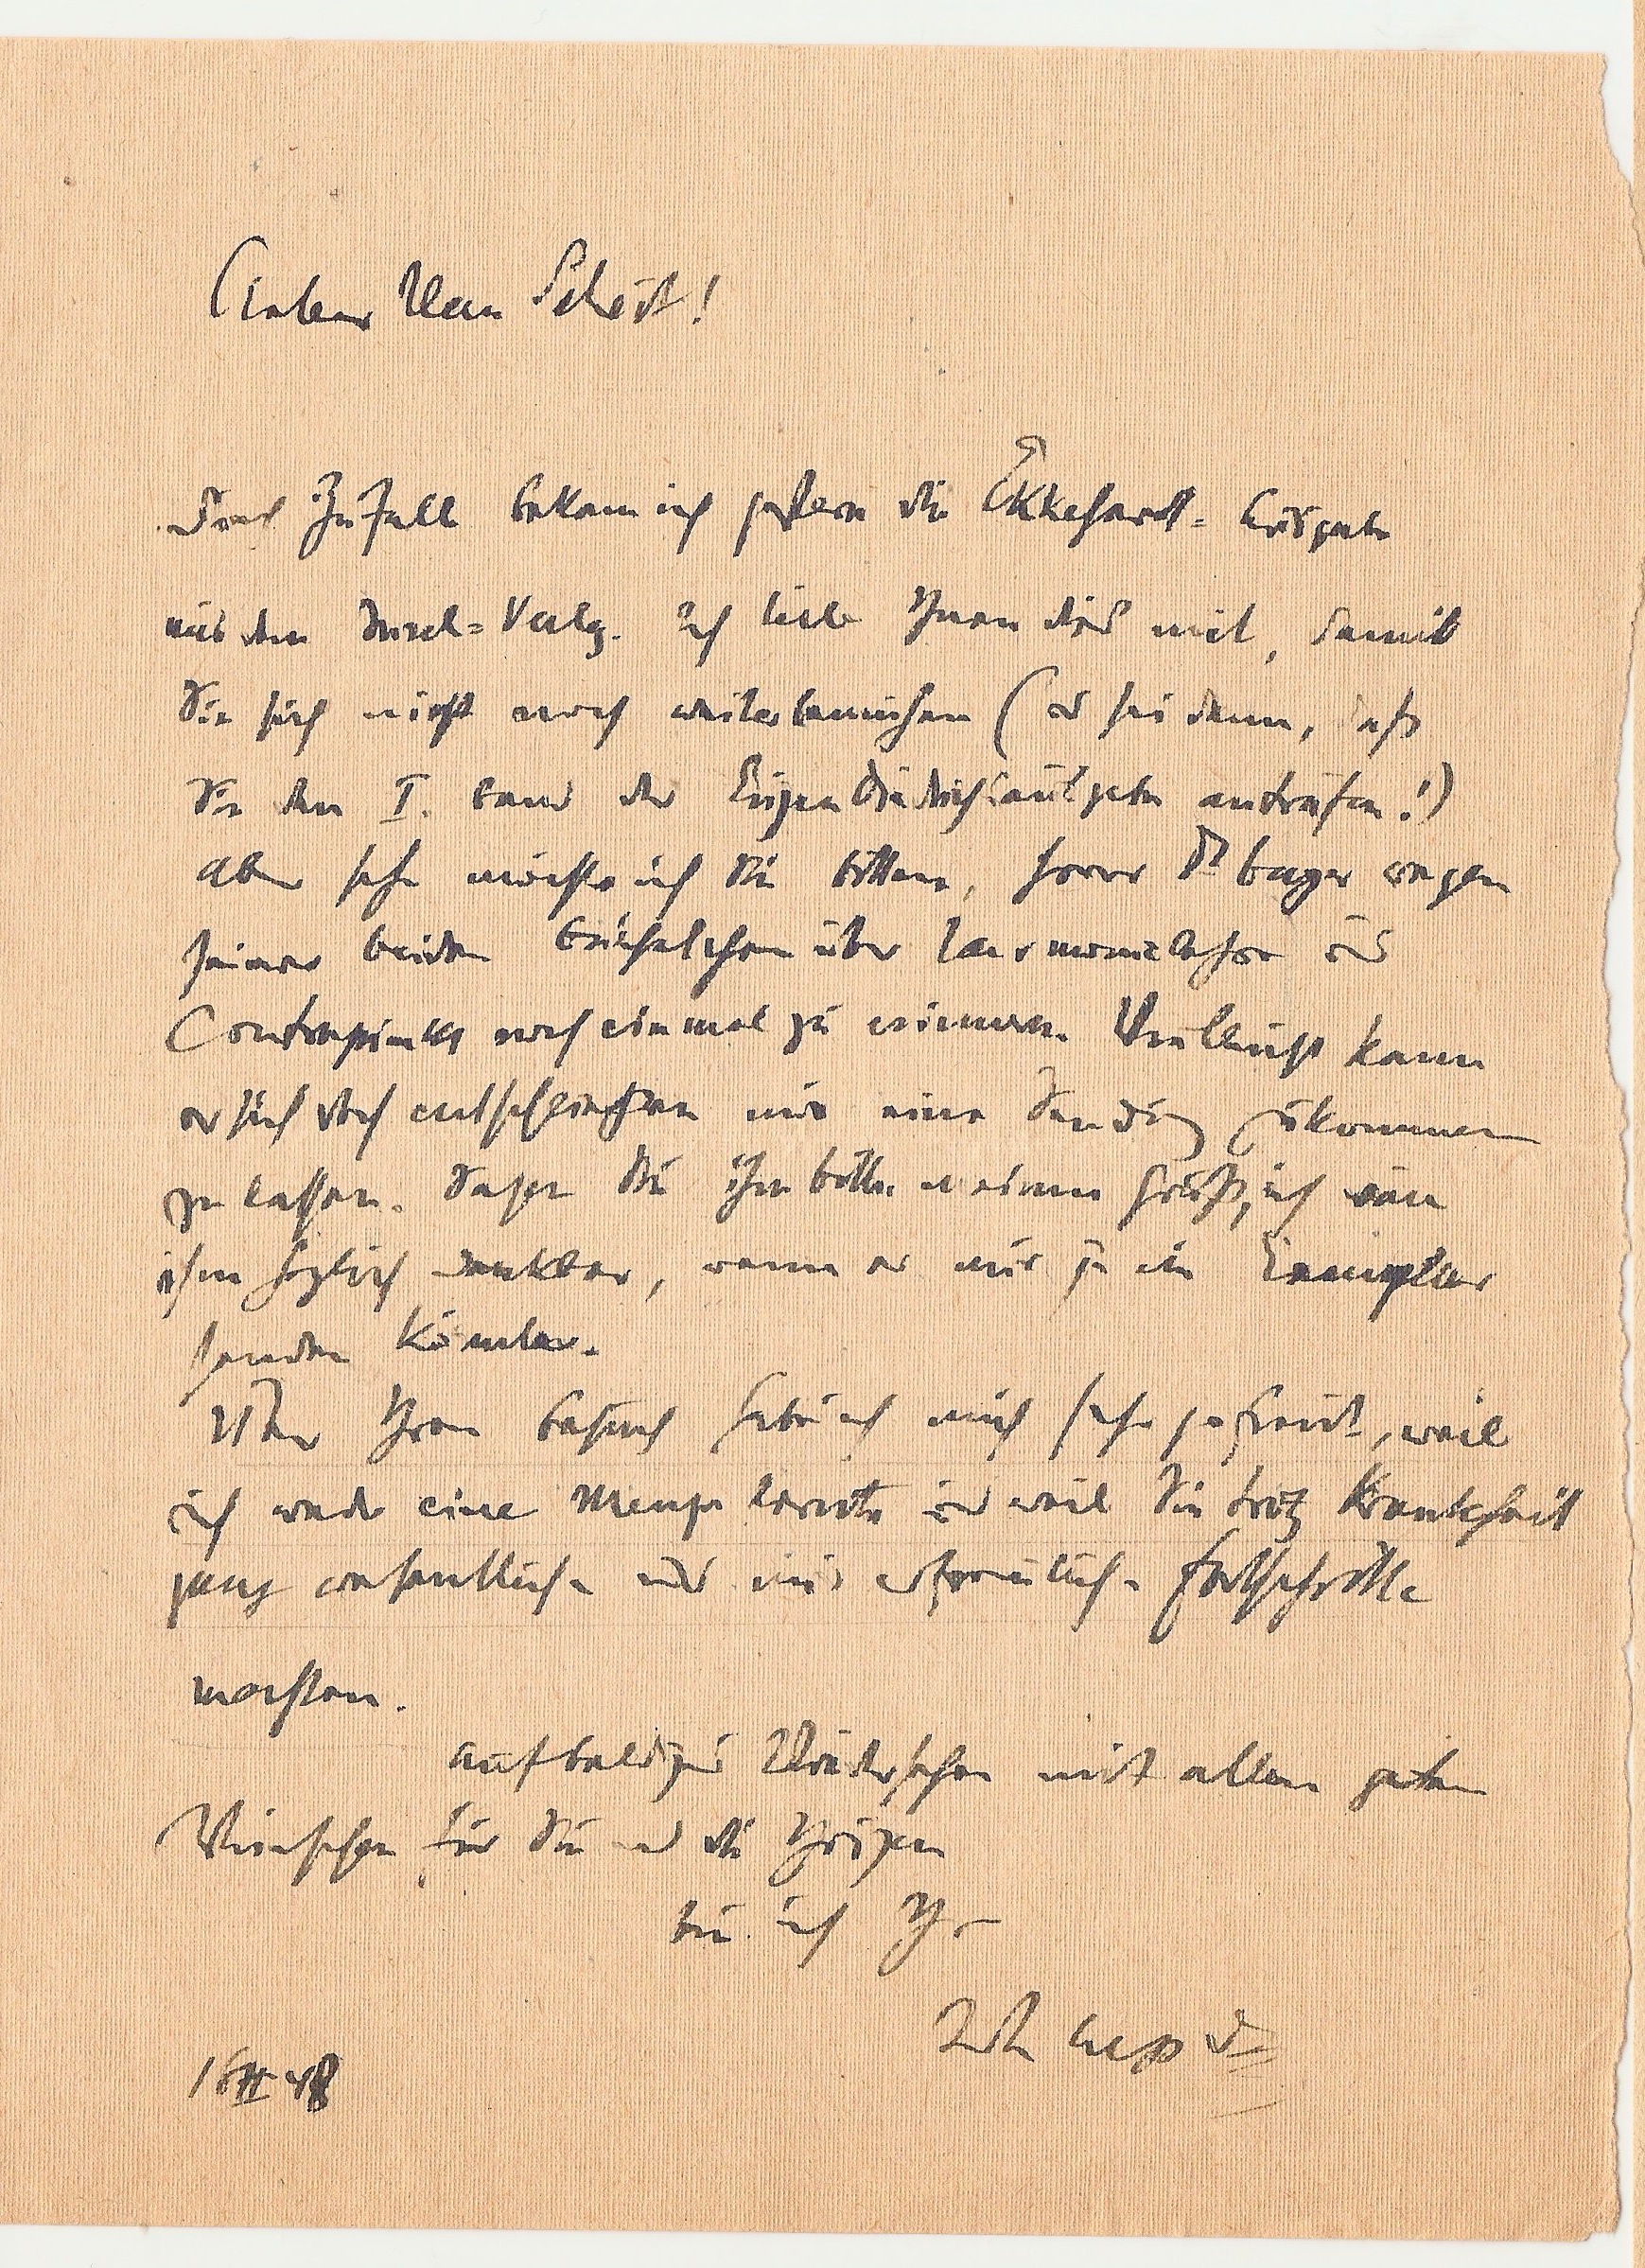 Lieber Herr Scheit!
Durch Zufall bekam ich gestern die Ekkehardt-Ausgabe
aus dem Insel-Verlg. Ich teile Ihnen dies mit, damit
Sie sich nicht noch weiterbemühen (es sei denn, daß
Sie den I. Band der Eugen Diederichsausgabe anträfen!)
Aber sehr möchte ich Sie bitten, Herrn Dr Bayer wegen
seiner beiden Büchelchen über Harmonielehre und
Contrapunkt noch einmal zu erinnern. Vielleicht kann
er sich doch entschließen mir eine Sendung zukommen
zu lassen. Sagen Sie ihm bitte meinen Gruß, ich wäre
ihm herzlich dankbar, wenn er mir je ein Exemplar
senden könnte.
Über Ihren Besuch habe ich mich sehr gefreut, weil
ich eine Menge lernte und weil Sie trotz Krankheit
ganz wesentliche und erfreuliche Fortschritte
machten.
Auf baldiges Wiedersehen mit allen guten
Wünschen für Sie und die Ihrigen
bin ich Ihr
16 II 48